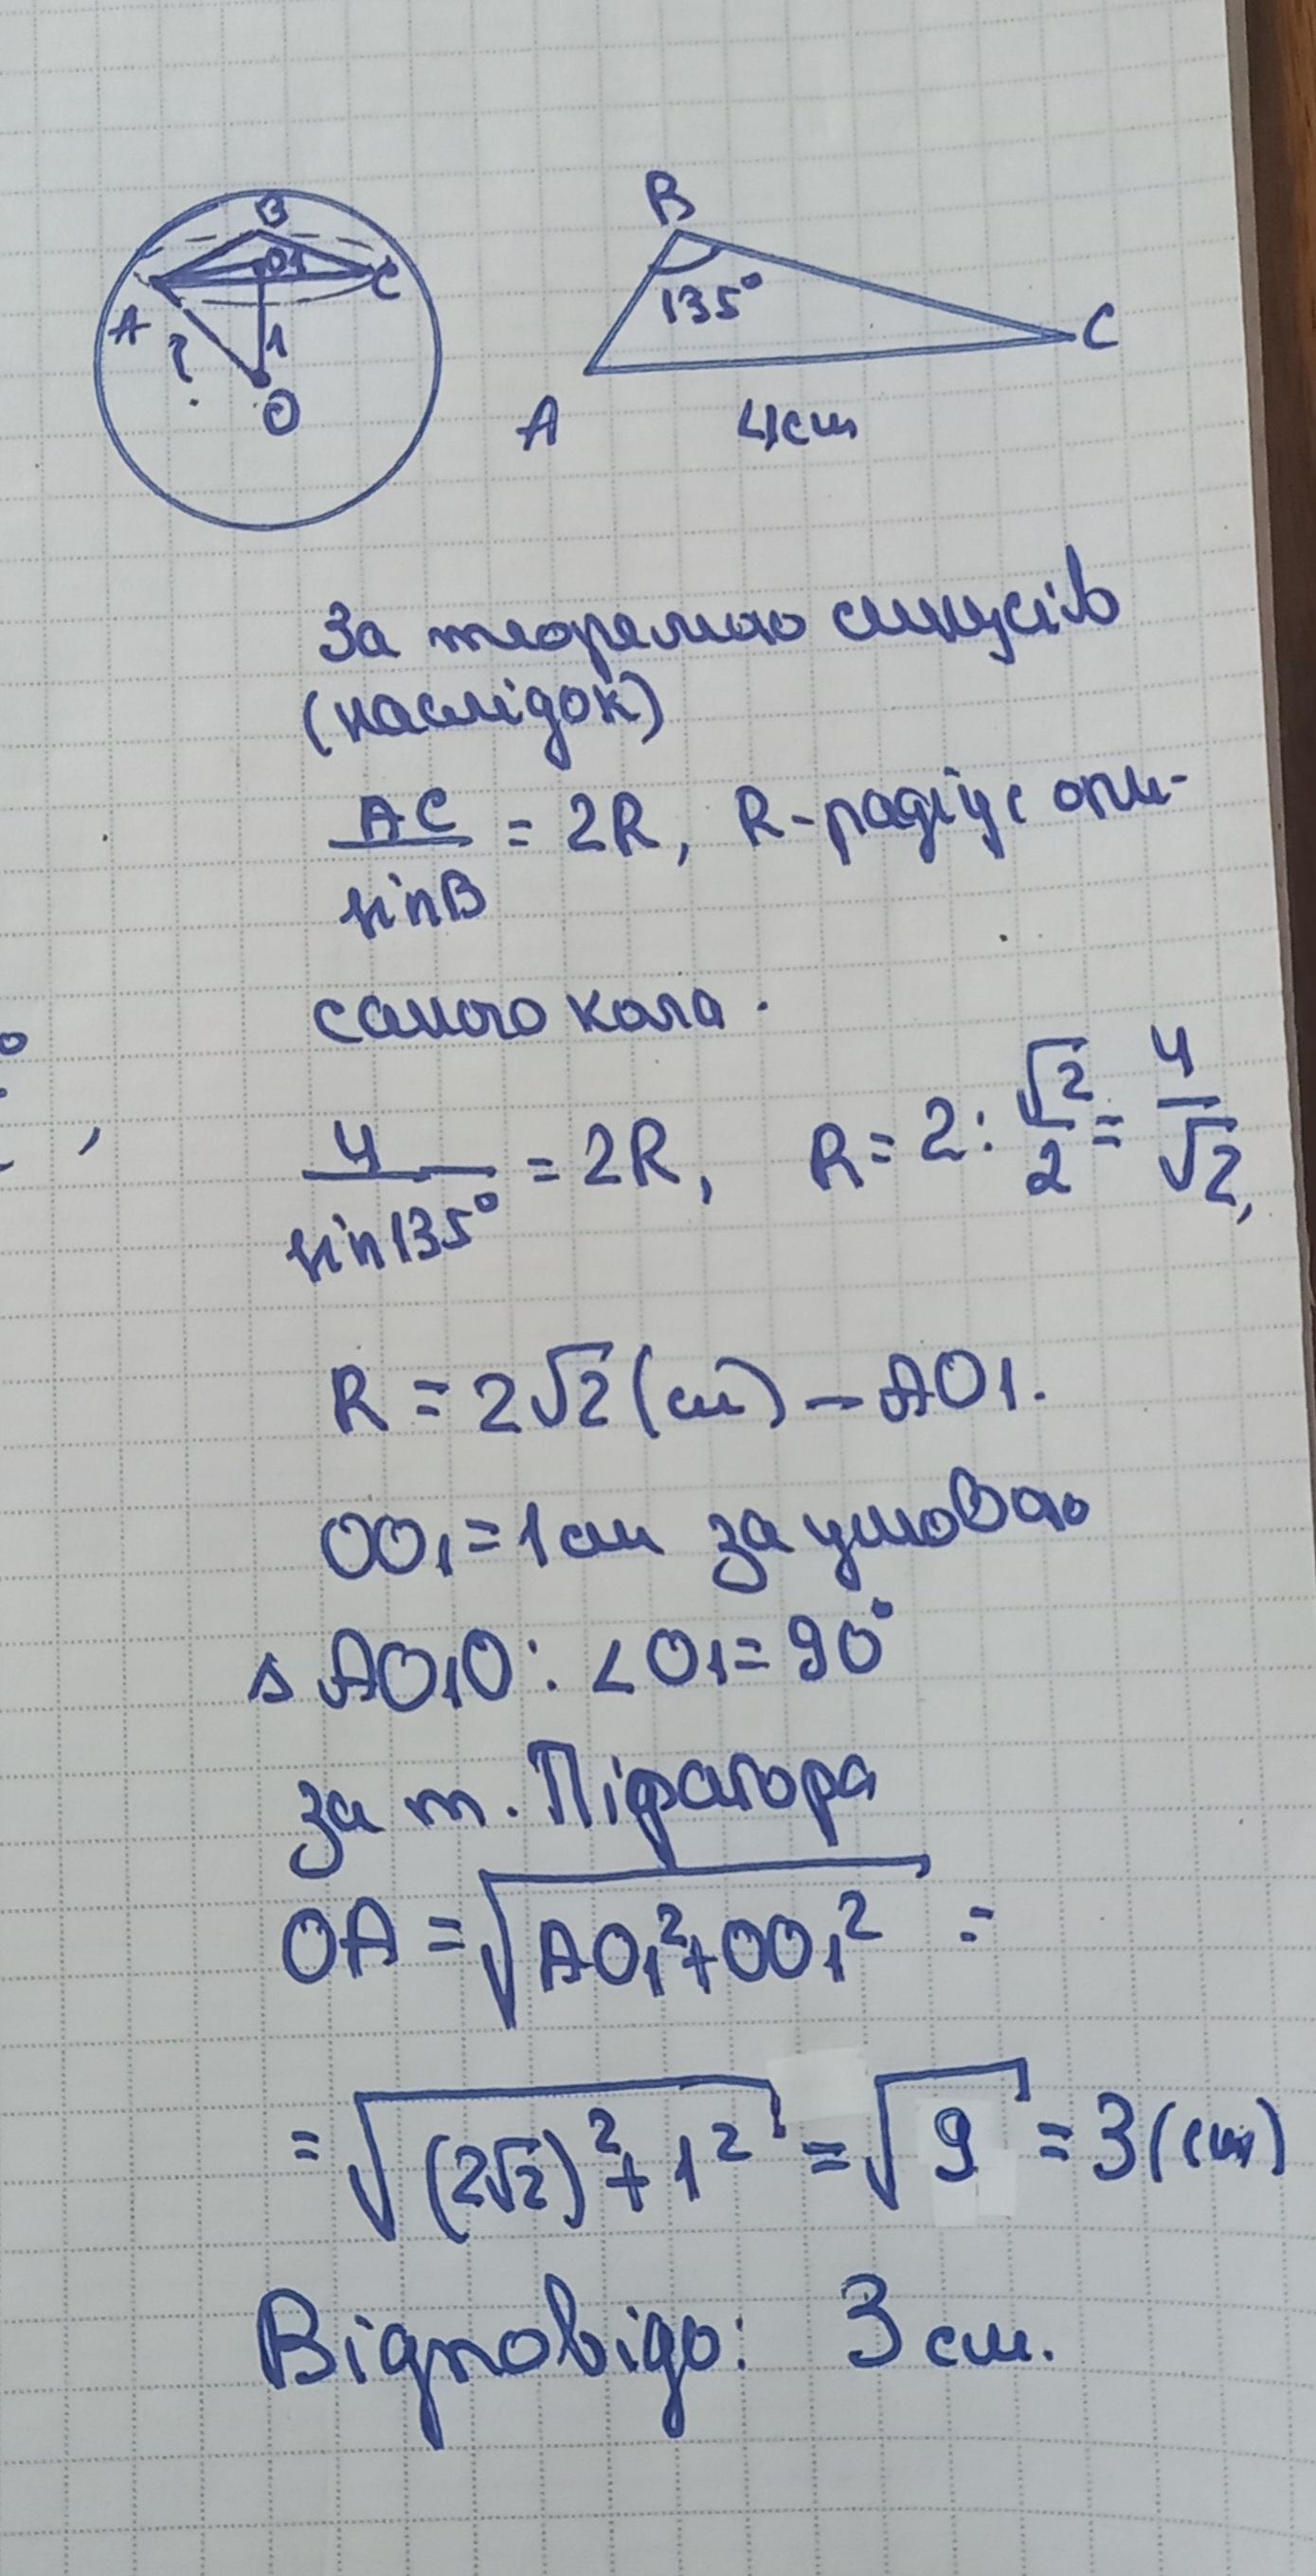 B
O1
A
C
?
1
O
B
135°
C
A
4см
За теоремою синусів
(наслідок)
AC/sinB = 2R, R-радіус опи-
саного кола.
4/sin135° = 2R, R = 2 : √2/2 = 4/√2,
R = 2√2 (см) – AO1.
OO₁ = 1 см за умовою
△ AO₁O: ∠O₁ = 90°
за т. Піфагора
OA = √(AO₁² + OO₁²) =
= √((2√2)² + 1²) = √9 = 3 (см)
Відповідь: 3 см.